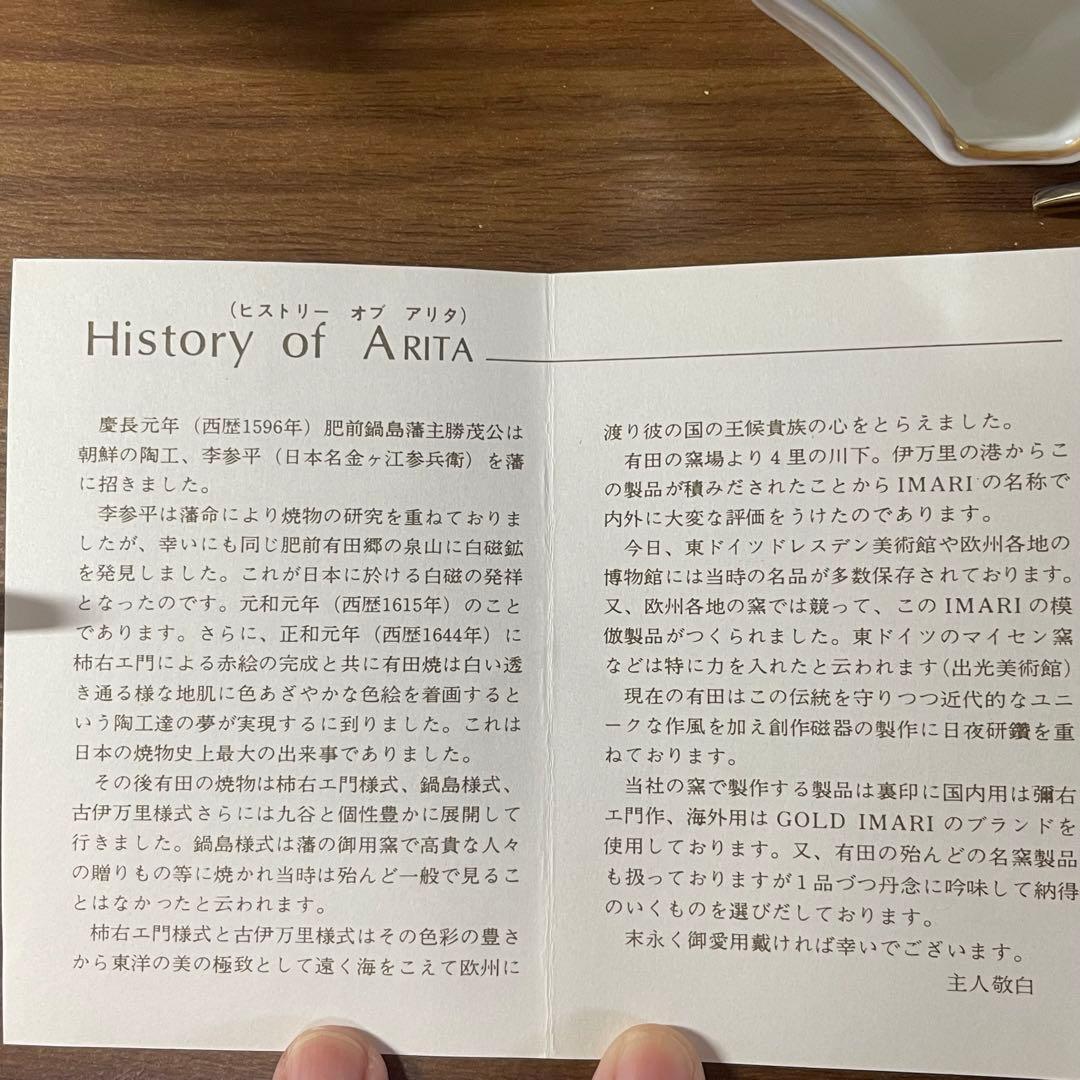 (ヒストリー オブ アリタ)
History of ARITA
慶長元年（西歴1596年）肥前鍋島藩主勝茂公は
朝鮮の陶工、李参平（日本名金ヶ江参兵衛）を藩
に招きました。
李参平は藩命により焼物の研究を重ねておりま
したが、幸いにも同じ肥前有田郷の泉山に白磁鉱
を発見しました。これが日本に於ける白磁の発祥
となったのです。元和元年（西歴1615年）のこと
であります。さらに、正和元年（西歴1644年）に
柿右エ門による赤絵の完成と共に有田焼は白い透
き通る様な地肌に色あざやかな色絵を着画すると
いう陶工達の夢が実現するに到りました。これは
日本の焼物史上最大の出来事でありました。
その後有田の焼物は柿右エ門様式、鍋島様式、
古伊万里様式さらには九谷と個性豊かに展開して
行きました。鍋島様式は藩の御用窯で高貴な人々
の贈りもの等に焼かれ当時は殆んど一般で見るこ
とはなかったと云われます。
柿右エ門様式と古伊万里様式はその色彩の豊さ
から東洋の美の極致として遠く海をこえて欧州に
渡り彼の国の王候貴族の心をとらえました。
有田の窯場より4里の川下。伊万里の港からこ
の製品が積みだされたことからIMARIの名称で
内外に大変な評価をうけたのであります。
今日、東ドイツドレスデン美術館や欧州各地の
博物館には当時の名品が多数保存されております。
又、欧州各地の窯では競って、このIMARIの模
倣製品がつくられました。東ドイツのマイセン窯
などは特に力を入れたと云われます(出光美術館)
現在の有田はこの伝統を守りつつ近代的なユニ
ークな作風を加え創作磁器の製作に日夜研鑽を重
ねております。
当社の窯で製作する製品は裏印に国内用は彌右
エ門作、海外用はGOLD IMARIのブランドを
使用しております。又、有田の殆んどの名窯製品
も扱っておりますが1品づつ丹念に吟味して納得
のいくものを選びだしております。
末永く御愛用戴ければ幸いでございます。
主人敬白